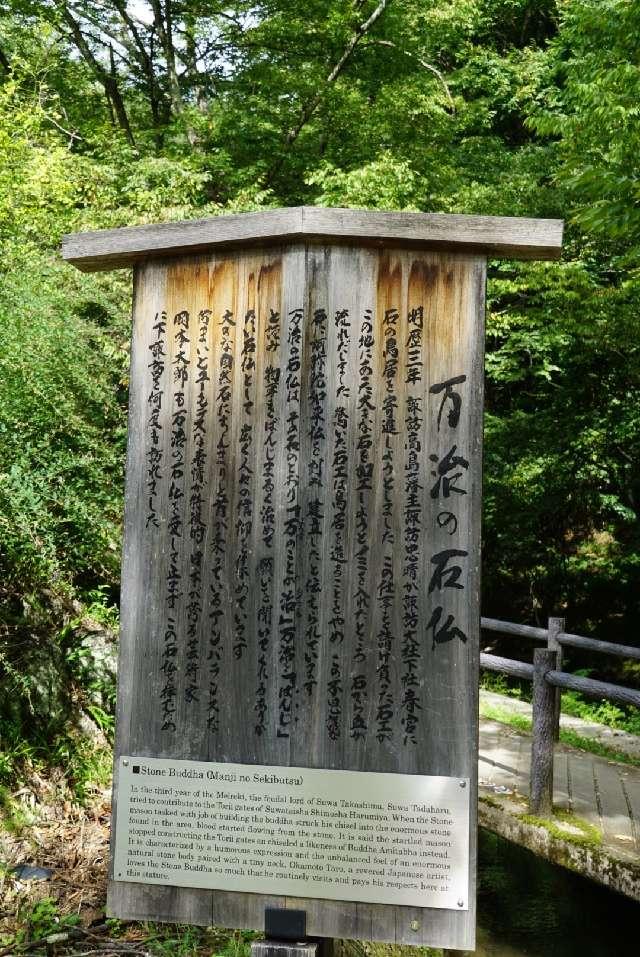 万治の石仏
明歴三年 諏訪高島藩主諏訪忠晴が諏訪大社下社 春宮に
石の鳥居を寄進しようとしました この仕事を請け負った石工が
この地にあった大きな石を加工しようとノミを入れたところ 石から血が
流れだしました 驚いた石工は鳥居を造ることをやめ この不思議な
石に阿弥陀如来仏を刻み 建立したと伝えられています
万治の石仏は 予衣のとおり「万のことが治」万治と「ばんじ」
と読み 物事をばんじまるく治めて 願いを聞いてくれるありが
たい石仏として 広く人々の信仰を集めています
大きな自然石にちんまりと首が乗っているアンバランスな
岡本太郎も万治の石仏を愛して止まず この石仏を拝むため
に下諏訪を何度も訪れました
■Stone Buddha (Manji no Sekibutsu)
In the third year of the Meireki, the feudal lord of Suwa Takashima, Suwa Tadaharu,
tried to contribute to the Torii gates of Suwataisha Shimosha Harumiya. When the Stone
mason tasked with job of building the buddha struck his chisel into the enormous stone
found in the area, blood started flowing from the stone. It is said the startled mason
stopped constructing the Torii gates an chiseled a likeness of Buddha Amitabha instead.
It is characterized by a humorous expression and the unbalanced feel of an enormous
natural stone body paired with a tiny neck. Okamoto Taro, a revered Japanese artist,
loves the Stone Buddha so much that he routinely visits and pays his respects here at
this stature.